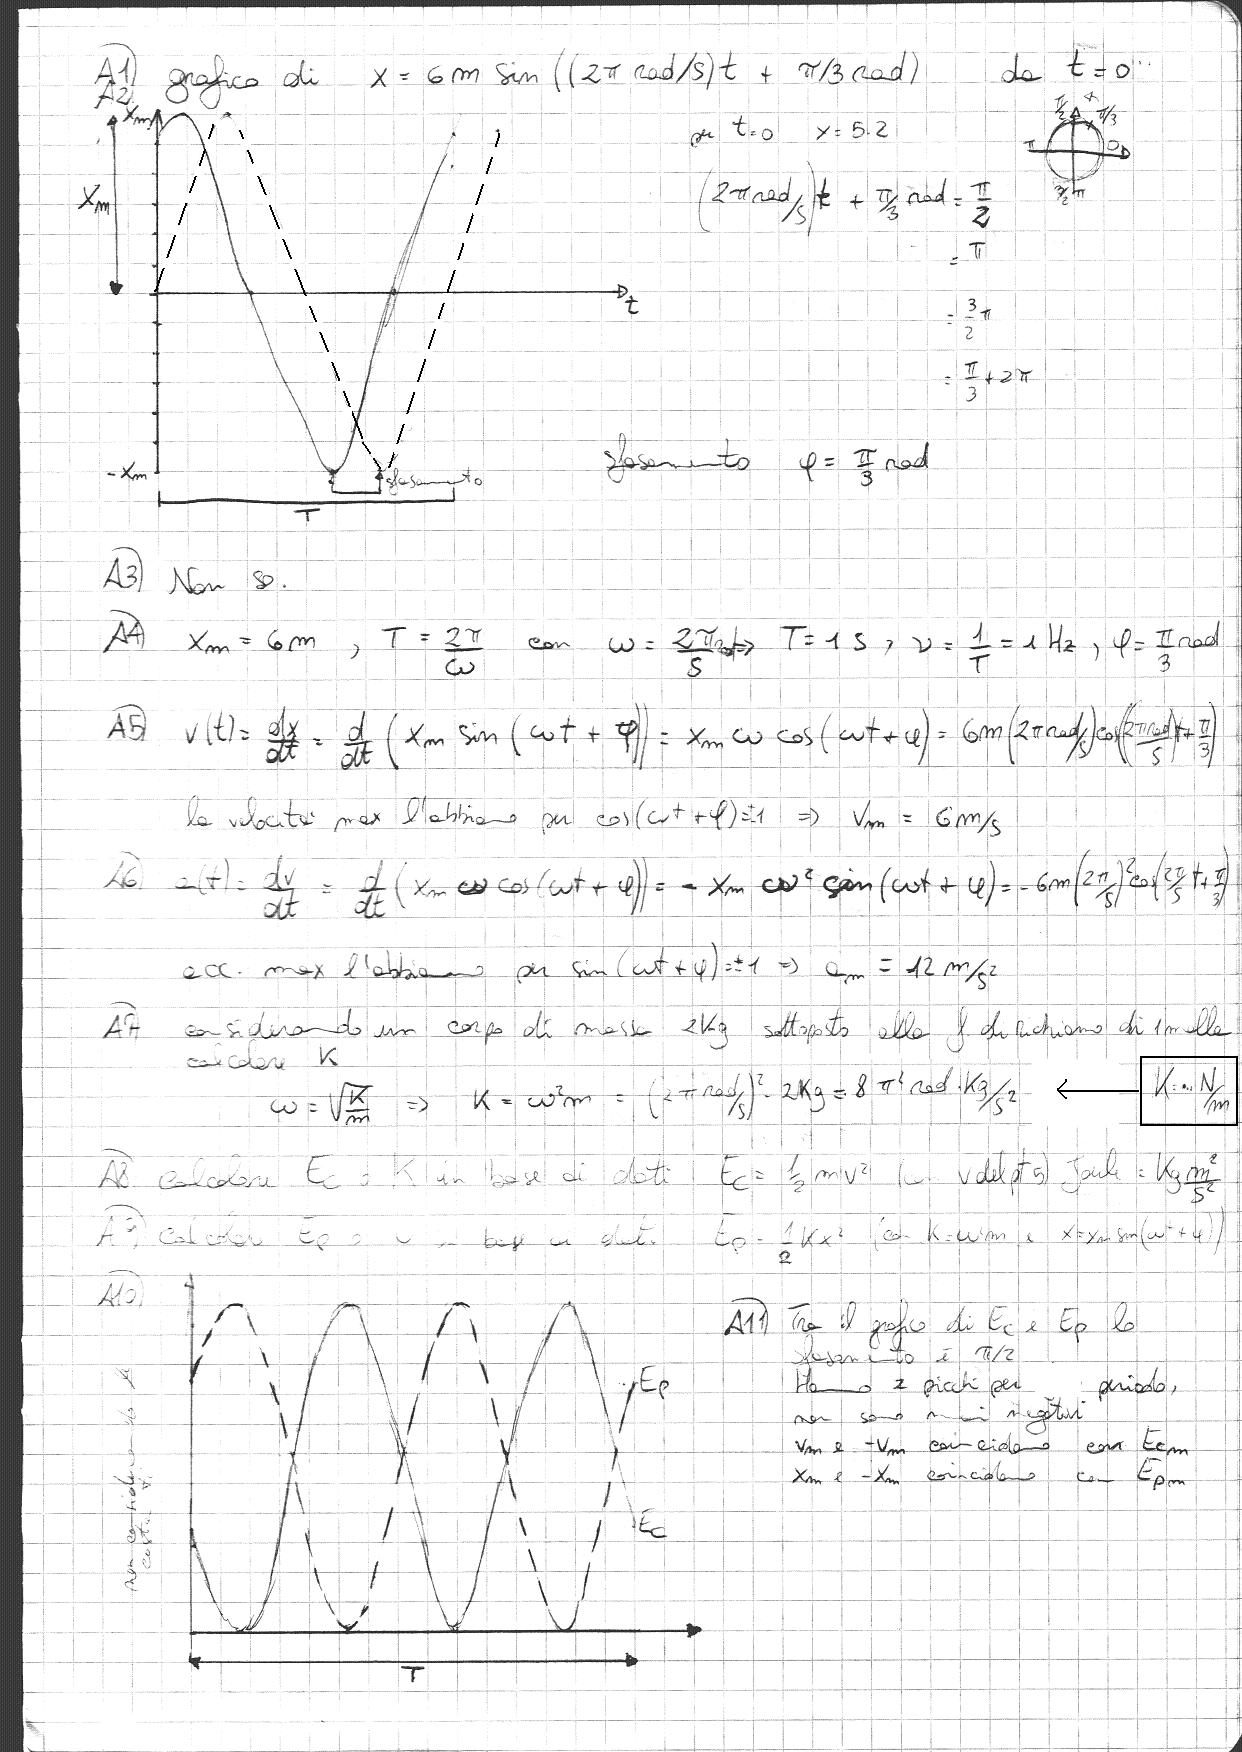 A1) grafico di x = 6m sin((2π rad/s)t + π/3 rad) da t=0
A2
xm
per t=0 x=5.2
π/2 x π/3
π 0
3/2 π
xm
(2π rad/s)t + π/3 rad = π/2
= π
t
= 3/2 π
= π/3 + 2π
-xm
sfasamento
sfasamento φ = π/3 rad
T
A3) Non so.
A4) xm = 6m, T = 2π/ω con ω = 2π rad/s => T = 1 s, ν = 1/T = 1 Hz, φ = π/3 rad
A5) v(t) = dx/dt = d/dt (xm sin(ωt + φ)) = xm ω cos(ωt+φ) = 6m(2π rad/s)cos((2π rad/s)t+π/3)
la velocità max l'abbiamo per cos(ωt+φ)=±1 => vm = 6m/s
A6) a(t) = dv/dt = d/dt (xm ω cos(ωt+φ)) = - xm ω² sin(ωt + φ) = -6m(2π/s)² cos(2π/s t+π/3)
acc. max l'abbiamo per sin(ωt+φ)=±1 => am = 12 m/s²
A7 considerando un corpo di massa 2Kg sottoposto alla f di richiamo di 1 molla
calcolare K
ω = √K/m => K = ω²m = (2π rad/s)² · 2Kg = 8 π² rad · Kg/s² ← K = ... N/m
A8 calcolare Ec e K in base ai dati Ec = 1/2 m v² (con v del pt 5) Joule = Kg m²/s²
A9) calcolare Ep in base ai dati Ep = 1/2 Kx² (con K=ω²m e x=xm sin(ωt+φ))
A10)
A11) Tra il grafico di Ec e Ep lo
sfasamento è π/2
Hanno 2 picchi per periodo,
non sono mai negativi
vm e -vm coincidono con Ecm
xm e -xm coincidono con Epm
Ep
Ec
non considerando
T